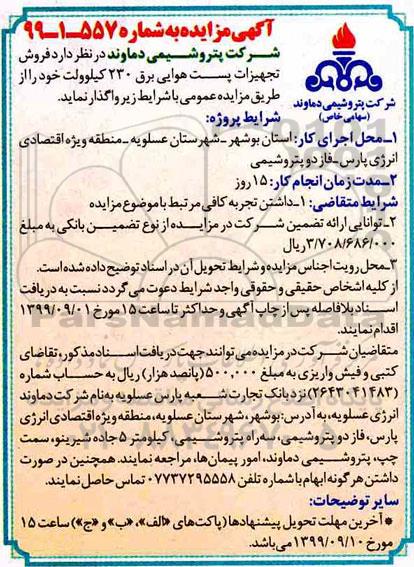 آگهی مزایده به شماره ۵۵۷-۱-۹۹
شرکت پتروشیمی دماوند
(سهامی خاص)
شرکت پتروشیمی دماوند در نظر دارد فروش
تجهیزات پست هوایی برق ۲۳۰ کیلوولت خود را از
طریق مزایده عمومی با شرایط زیر واگذار نماید.
شرایط پروژه:
۱-محل اجرای کار: استان بوشهر-شهرستان عسلویه-منطقه ویژه اقتصادی
انرژی پارس-فاز دو پتروشیمی
۲-مدت زمان انجام کار: ۱۵ روز
شرایط متقاضی: ۱-داشتن تجربه کافی مرتبط با موضوع مزایده
۲-توانایی ارائه تضمین شرکت در مزایده از نوع تضمین بانکی به مبلغ
۳/۷۰۸/۶۸۶/۰۰۰ ریال
۳-محل رویت اجناس مزایده و شرایط تحویل آن در اسناد توضیح داده شده است.
از کلیه اشخاص حقیقی و حقوقی واجد شرایط دعوت می‌گردد نسبت به دریافت
اسناد بلافاصله پس از چاپ آگهی و حداکثر تا ساعت ۱۵ مورخ ۱۳۹۹/۰۹/۰۱
اقدام نمایند.
متقاضیان شرکت در مزایده می‌توانند جهت دریافت اسناد مذکور، تقاضای
کتبی و فیش واریزی به مبلغ ۵۰۰,۰۰۰ (پانصد هزار) ریال به حساب شماره
(۲۶۶۳۰۴۱۴۸۳) نزد بانک تجارت شعبه پارس عسلویه به نام شرکت دماوند
انرژی عسلویه، به آدرس: بوشهر، شهرستان عسلویه، منطقه ویژه اقتصادی انرژی
پارس، فاز دو پتروشیمی، سه راه پتروشیمی، کیلومتر ۵ جاده شیرینو، سمت
چپ، پتروشیمی دماوند، امور پیمان‌ها، مراجعه نمایند. همچنین در صورت
داشتن هرگونه ابهام با شماره تلفن ۰۷۷۳۷۲۹۵۵۵۸ تماس حاصل نمایند.
سایر توضیحات:
* آخرین مهلت تحویل پیشنهادها (پاکت‌های «الف»، «ب» و «ج») ساعت ۱۵
مورخ ۱۳۹۹/۰۹/۱۰ می‌باشد.
ParsNamadData